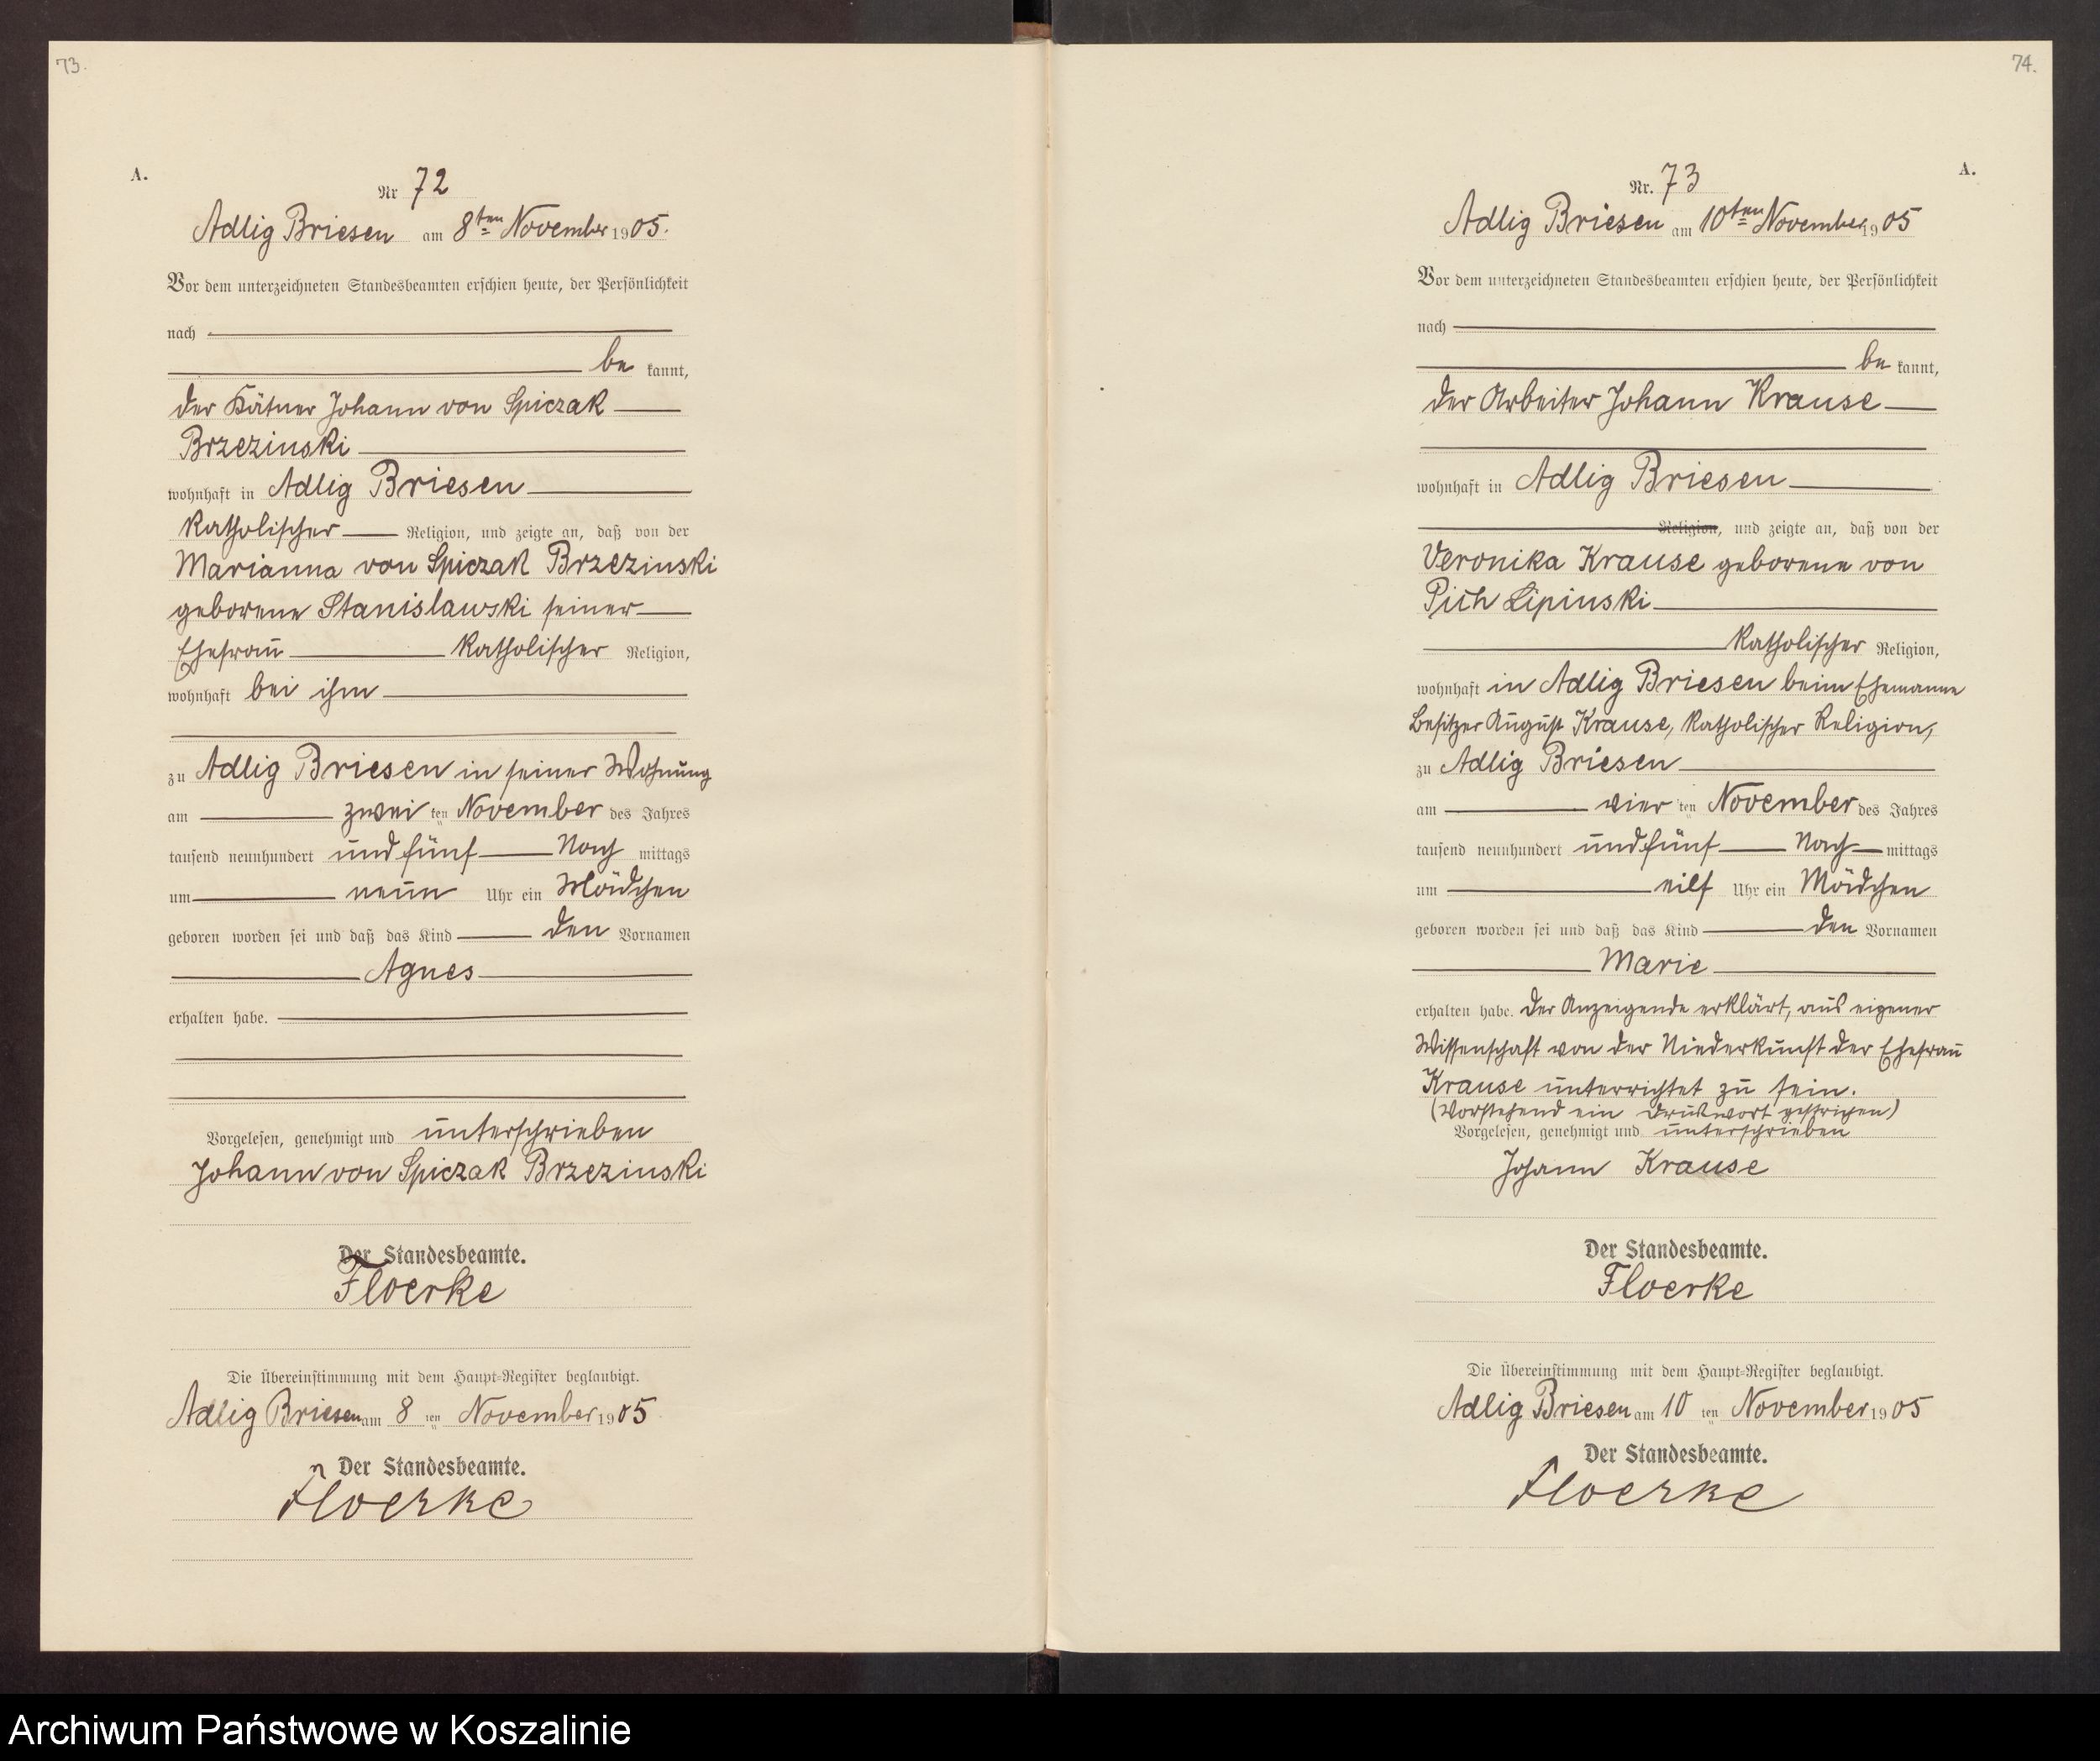 73.
A.
Nr 72
Adlig Briesen am 8ten November 1905.
Vor dem unterzeichneten Standesbeamten erschien heute, der Persönlichkeit
nach
be kannt,
der Kätner Johann von Spiczak
Brzezinski
wohnhaft in Adlig Briesen
katholischer Religion, und zeigte an, daß von der
Marianna von Spiczak Brzezinski
geborene Stanislawski seiner
Ehefrau katholischer Religion,
wohnhaft bei ihm
zu Adlig Briesen in seiner Wohnung
am zwei ten November des Jahres
tausend neunhundert undfünf Nach mittags
um neun Uhr ein Mädchen
geboren worden sei und daß das Kind den Vornamen
Agnes
erhalten habe.
Vorgelesen, genehmigt und unterschrieben
Johann von Spiczak Brzezinski
Der Standesbeamte.
Floerke
Die Übereinstimmung mit dem Haupt-Register beglaubigt.
Adlig Briesen am 8 ten November 1905
Der Standesbeamte.
Floerke
74.
A.
Nr. 73
Adlig Briesen am 10ten November 1905
Vor dem unterzeichneten Standesbeamten erschien heute, der Persönlichkeit
nach
be kannt,
der Arbeiter Johann Krause
wohnhaft in Adlig Briesen
Religion, und zeigte an, daß von der
Veronika Krause geborene von
Pich Lipinski
katholischer Religion,
wohnhaft in Adlig Briesen beim Ehemanne
Besitzer August Krause, katholischer Religion,
zu Adlig Briesen
am vier ten November des Jahres
tausend neunhundert undfünf Nach mittags
um eilf Uhr ein Mädchen
geboren worden sei und daß das Kind den Vornamen
Marie
erhalten habe. Der Anzeigende erklärt, aus eigener
Wissenschaft von der Niederkunft der Ehefrau
Krause unterrichtet zu sein.
(Vorstehend ein Druckwort gestrichen)
Vorgelesen, genehmigt und unterschrieben
Johann Krause
Der Standesbeamte.
Floerke
Die Übereinstimmung mit dem Haupt-Register beglaubigt.
Adlig Briesen am 10 ten November 1905
Der Standesbeamte.
Floerke
Archiwum Państwowe w Koszalinie